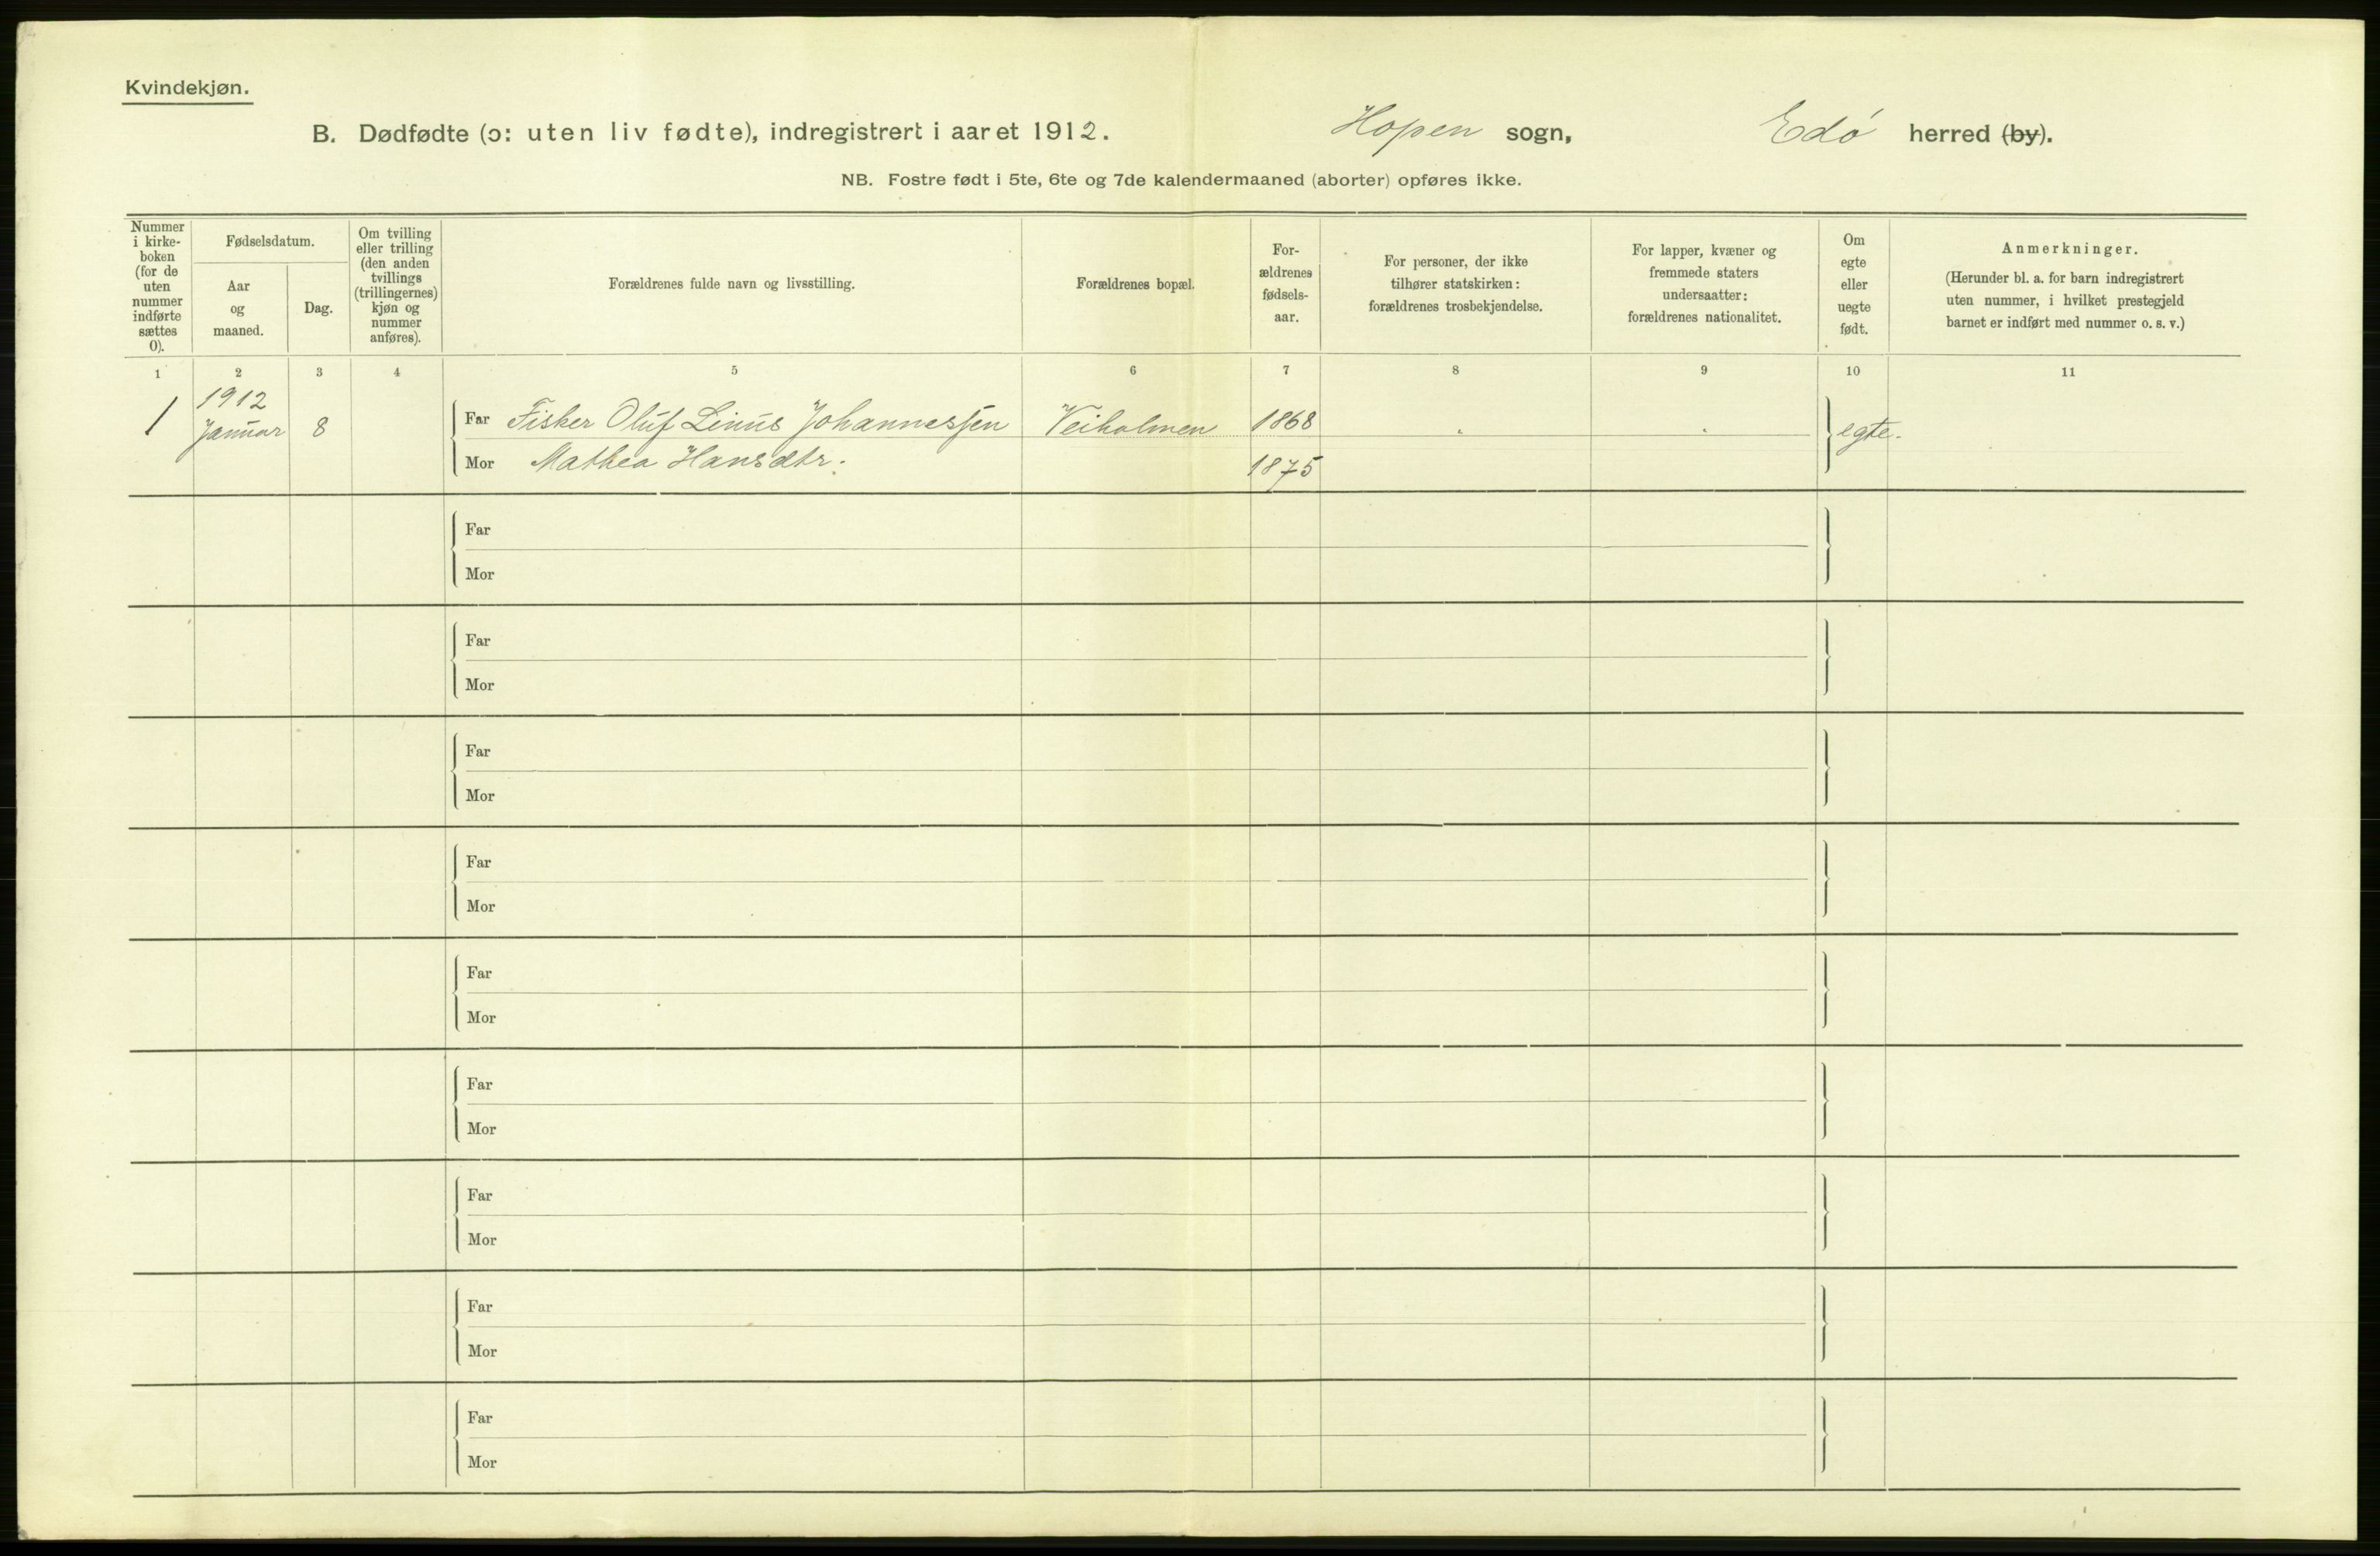 Kvindekjøn.
B. Dødfødte (ɔ: uten liv fødte), indregistrert i aaret 1912. Hopen sogn, Edø herred (by).
NB. Fostre født i 5te, 6te og 7de kalendermaaned (aborter) opføres ikke.
Nummer
i kirke-
boken
(for de
uten
nummer
indførte
sættes
0).
Fødselsdatum.
Aar
og
maaned.
Dag.
Om tvilling
eller trilling
(den anden
tvillings
(trillingernes)
kjøn og
nummer
anføres).
Forældrenes fulde navn og livsstilling.
Forældrenes bopæl.
For-
ældrenes
fødsels-
aar.
For personer, der ikke
tilhører statskirken:
forældrenes trosbekjendelse.
For lapper, kvæner og
fremmede staters
undersaatter:
forældrenes nationalitet.
Om
egte
eller
uegte
født.
Anmerkninger.
(Herunder bl. a. for barn indregistrert
uten nummer, i hvilket prestegjeld
barnet er indført med nummer o. s. v.)
1 2 3 4 5 6 7 8 9 10 11
1912
1 Januar 8 Far Fisker Oluf Linus Johannessen Veiholmen 1868 " " egte.
Mor Mathea Hansdtr. 1875
Far
Mor
Far
Mor
Far
Mor
Far
Mor
Far
Mor
Far
Mor
Far
Mor
Far
Mor
Far
Mor